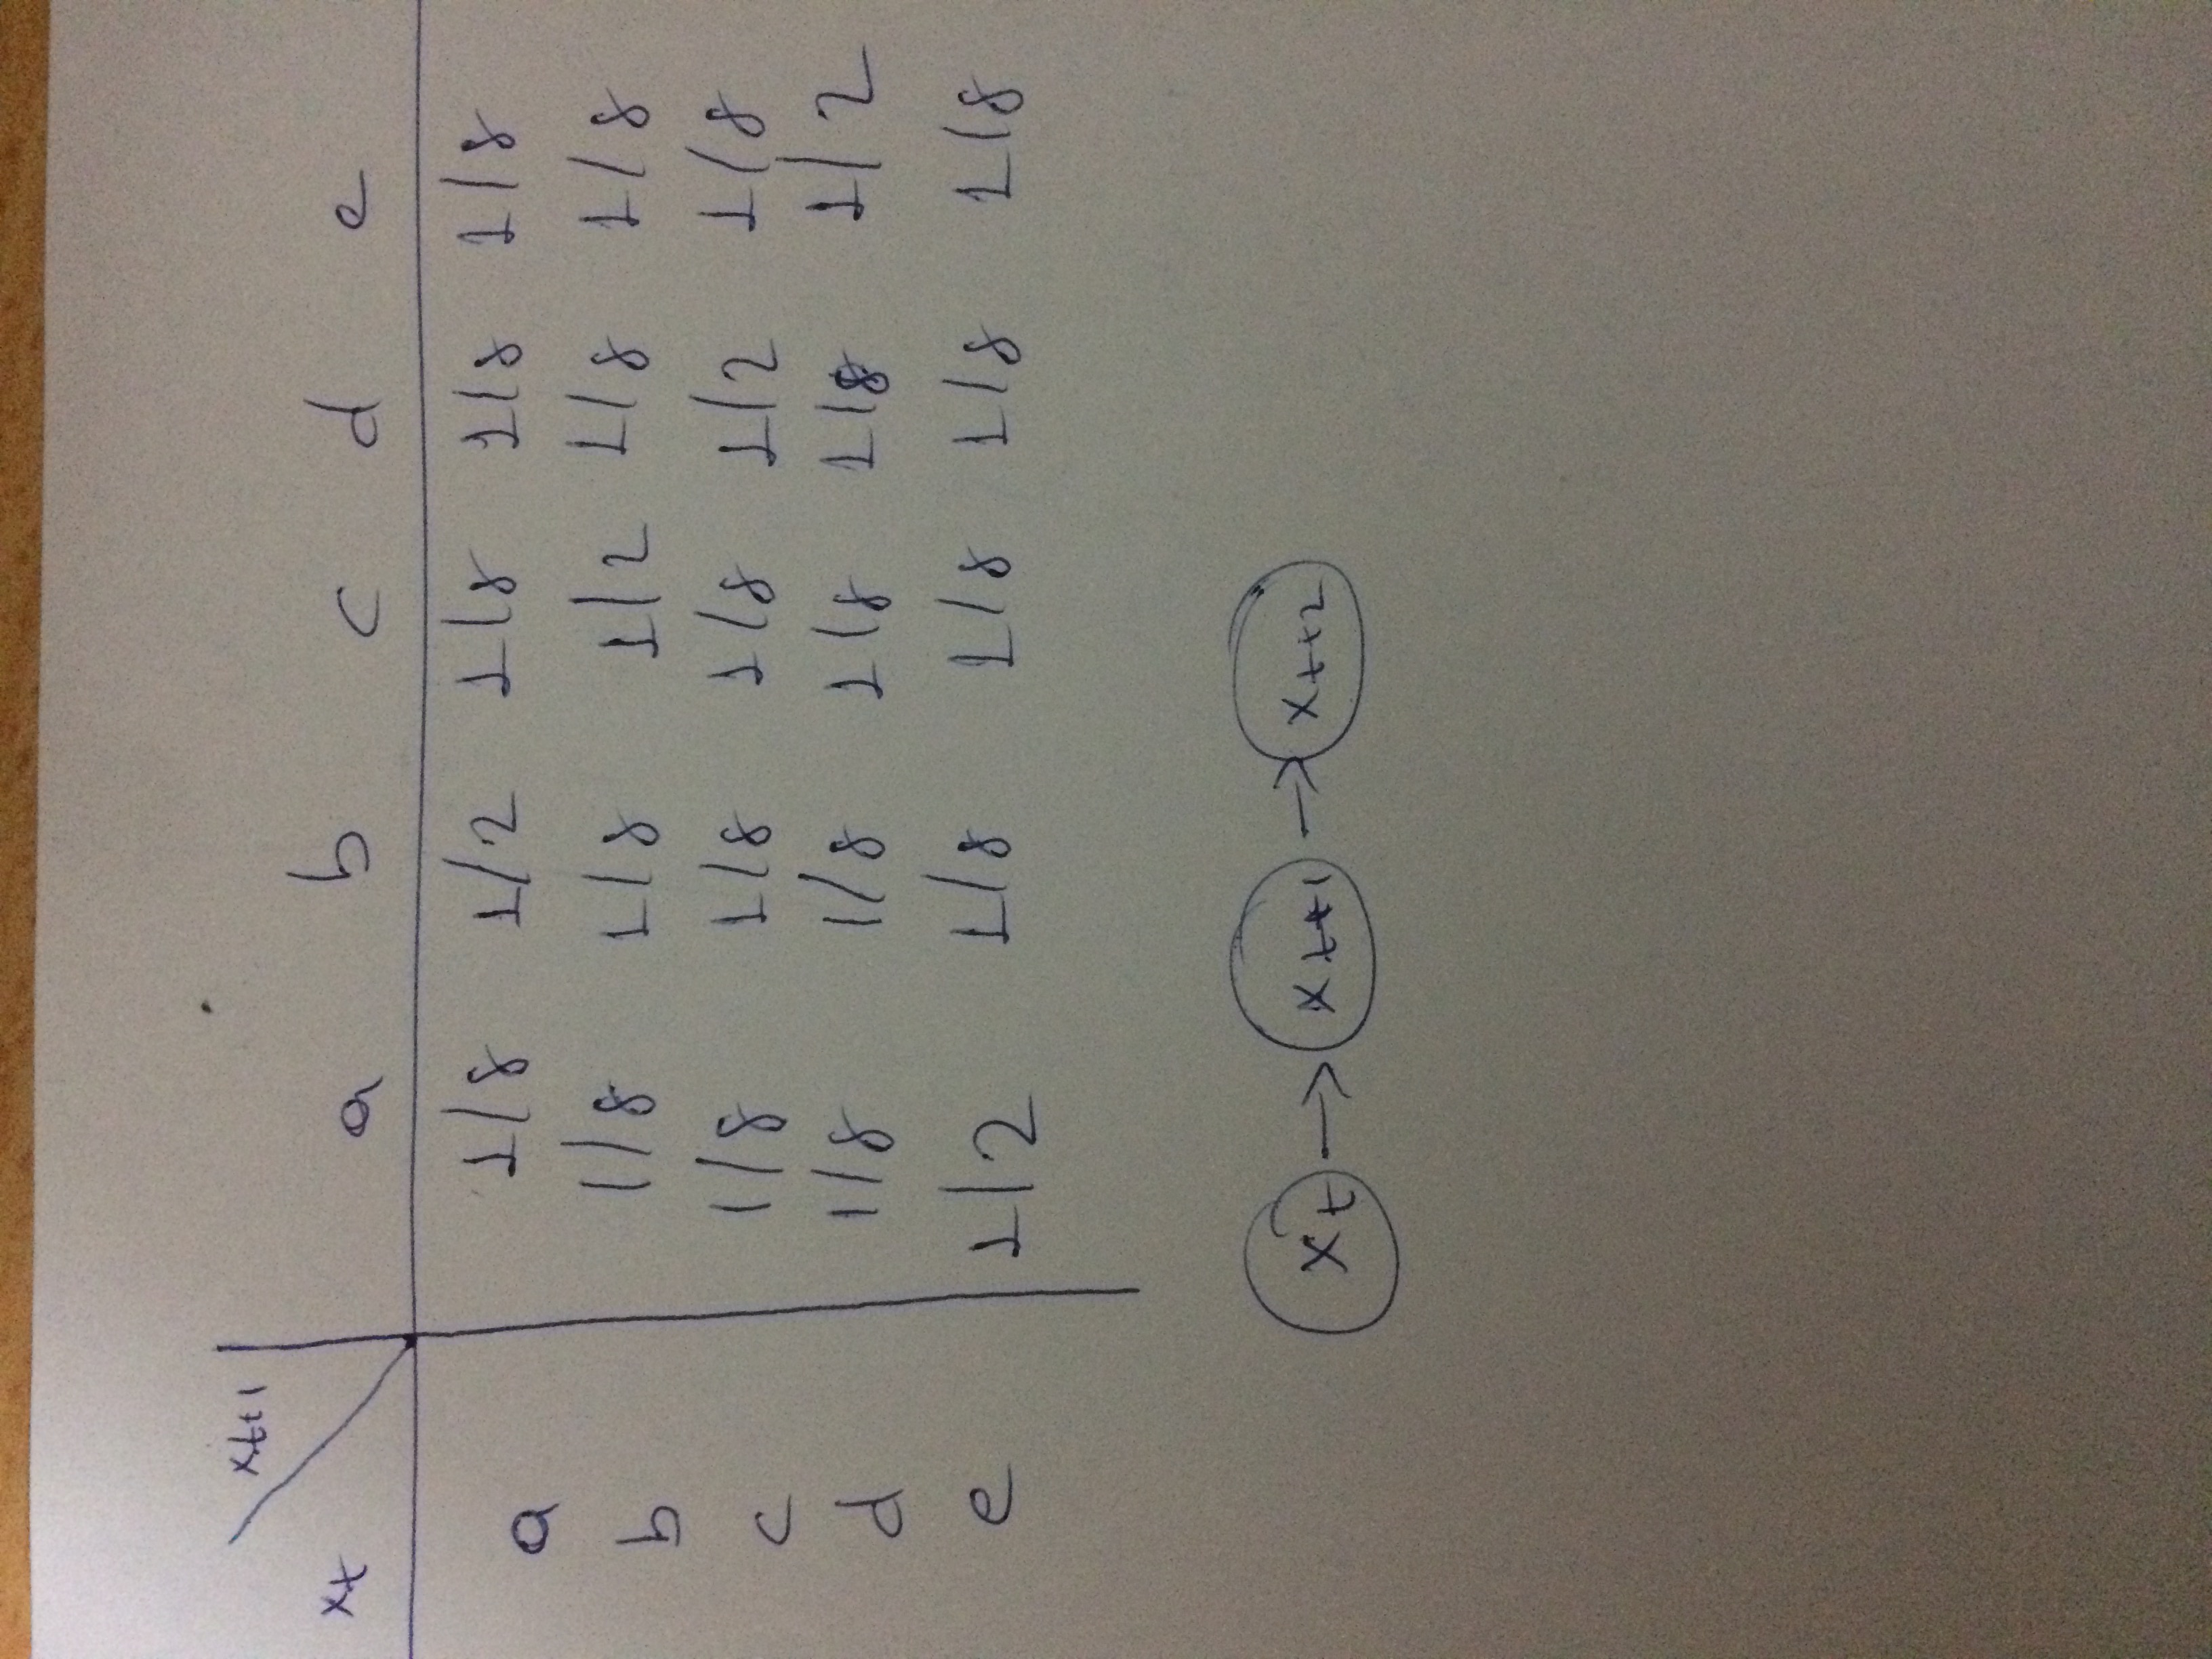 x_{t+1}
x_t a b c d e
a 1/8 1/2 1/8 1/8 1/8
b 1/8 1/8 1/2 1/8 1/8
c 1/8 1/8 1/8 1/2 1/8
d 1/8 1/8 1/8 1/8 1/2
e 1/2 1/8 1/8 1/8 1/8
x_t → x_{t+1} → x_{t+2}